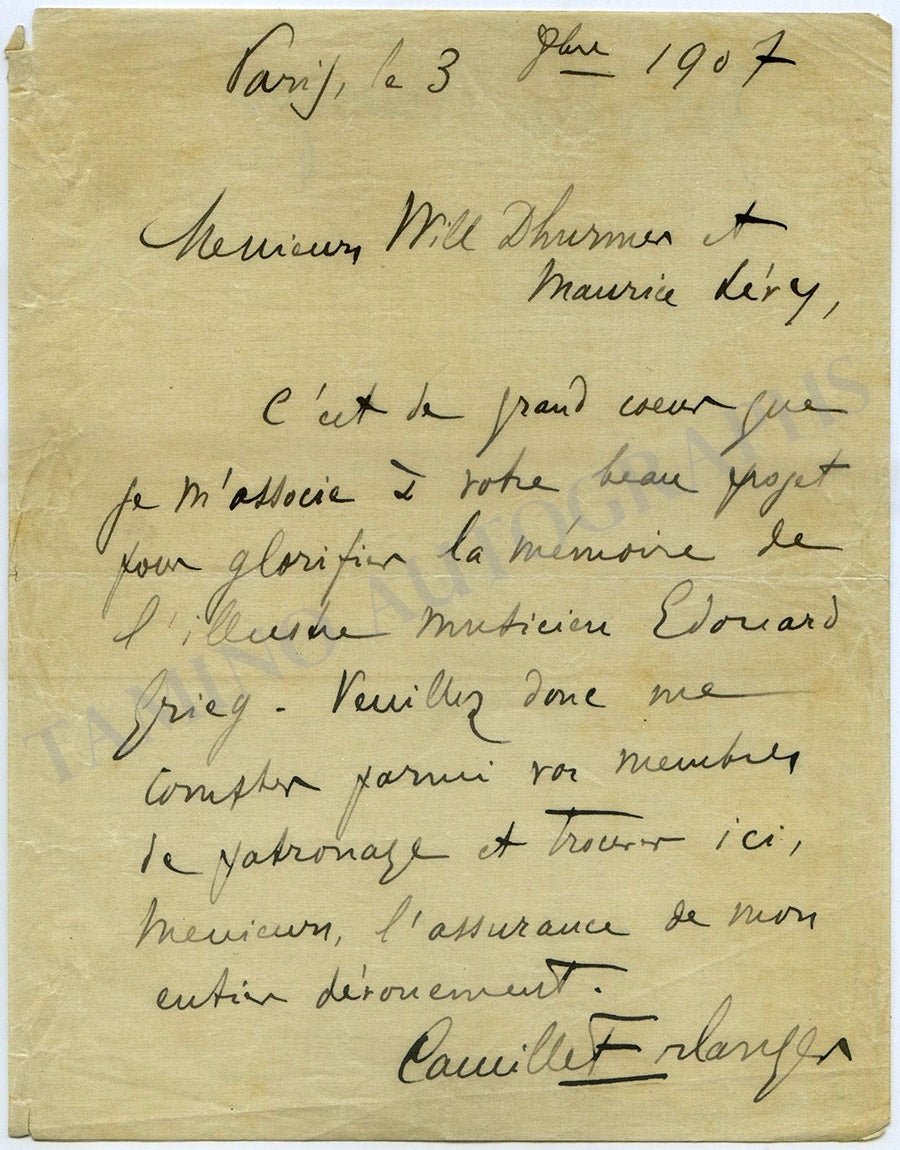 Paris, le 3 9bre 1907
Messieurs Will Dhurmer et
Maurice Lévy,
C'est de grand coeur que
je m'associe à votre beau projet
pour glorifier la mémoire de
l'illustre musicien Edouard
Grieg - Veuillez donc me
compter parmi vos membres
de patronage et trouver ici,
Messieurs, l'assurance de mon
entier dévouement.
Camille Erlanger
TAMINO AUTOGRAPHS